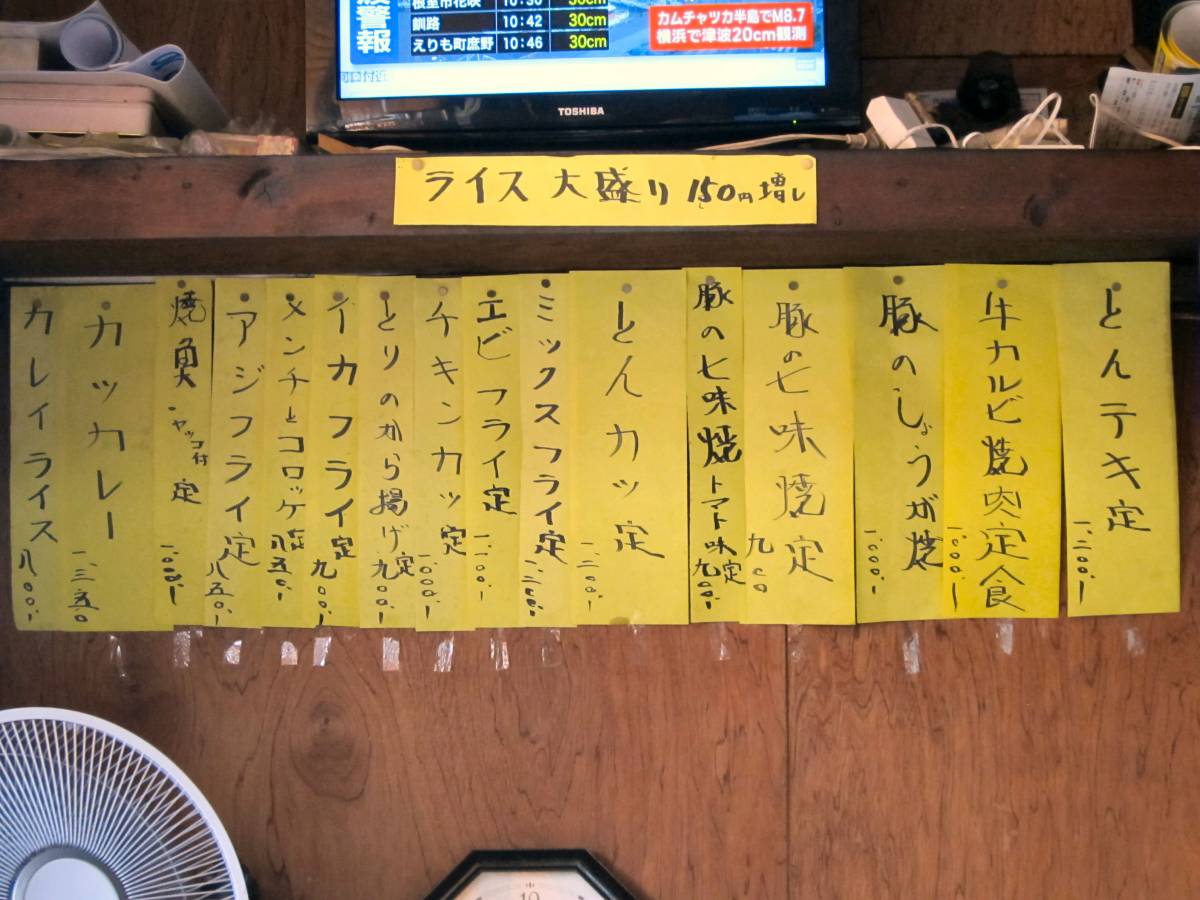 警報
釧路 10:42 30cm
えりも町庶野 10:46 30cm
カムチャツカ半島でM8.7
横浜で津波20cm観測
TOSHIBA
ライス 大盛り 150円増し
とんテキ定 一、二〇〇、
牛カルビ焼肉定食 一、〇〇〇、
豚のしょうが焼 一、〇〇〇、
豚の七味焼定 九〇〇
豚の七味焼トマト味定 九〇〇、
とんカツ定 一、二〇〇、
ミックスフライ定 一、二〇〇、
エビフライ定 一、一〇〇、
チキンカツ定 一、〇〇〇、
とりのから揚げ定 九〇〇、
イカフライ定 九〇〇、
メンチとコロッケ定 八五〇、
アジフライ定 八五〇、
焼魚 ヤッコ付 定
カツカレー 一、三五〇
カレイライス 八〇〇、